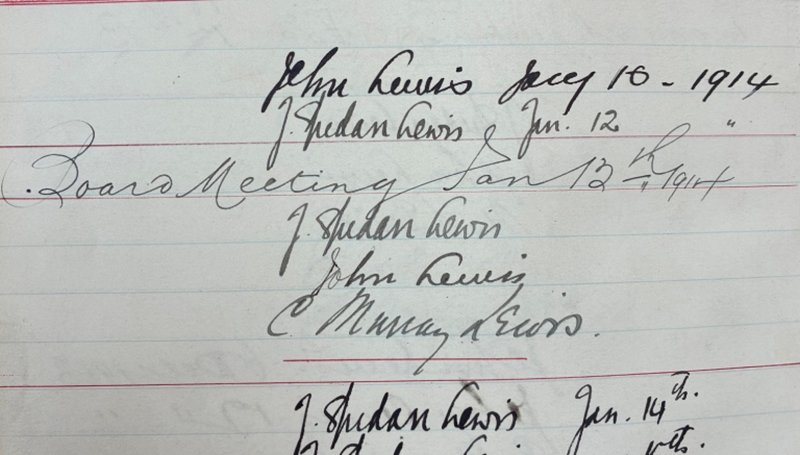 John Lewis Jany 10 - 1914
J. Spedan Lewis Jan. 12 "
Board Meeting Jan 13th 1914
J. Spedan Lewis
John Lewis
C. Murray Lewis.
J. Spedan Lewis Jan. 14th.